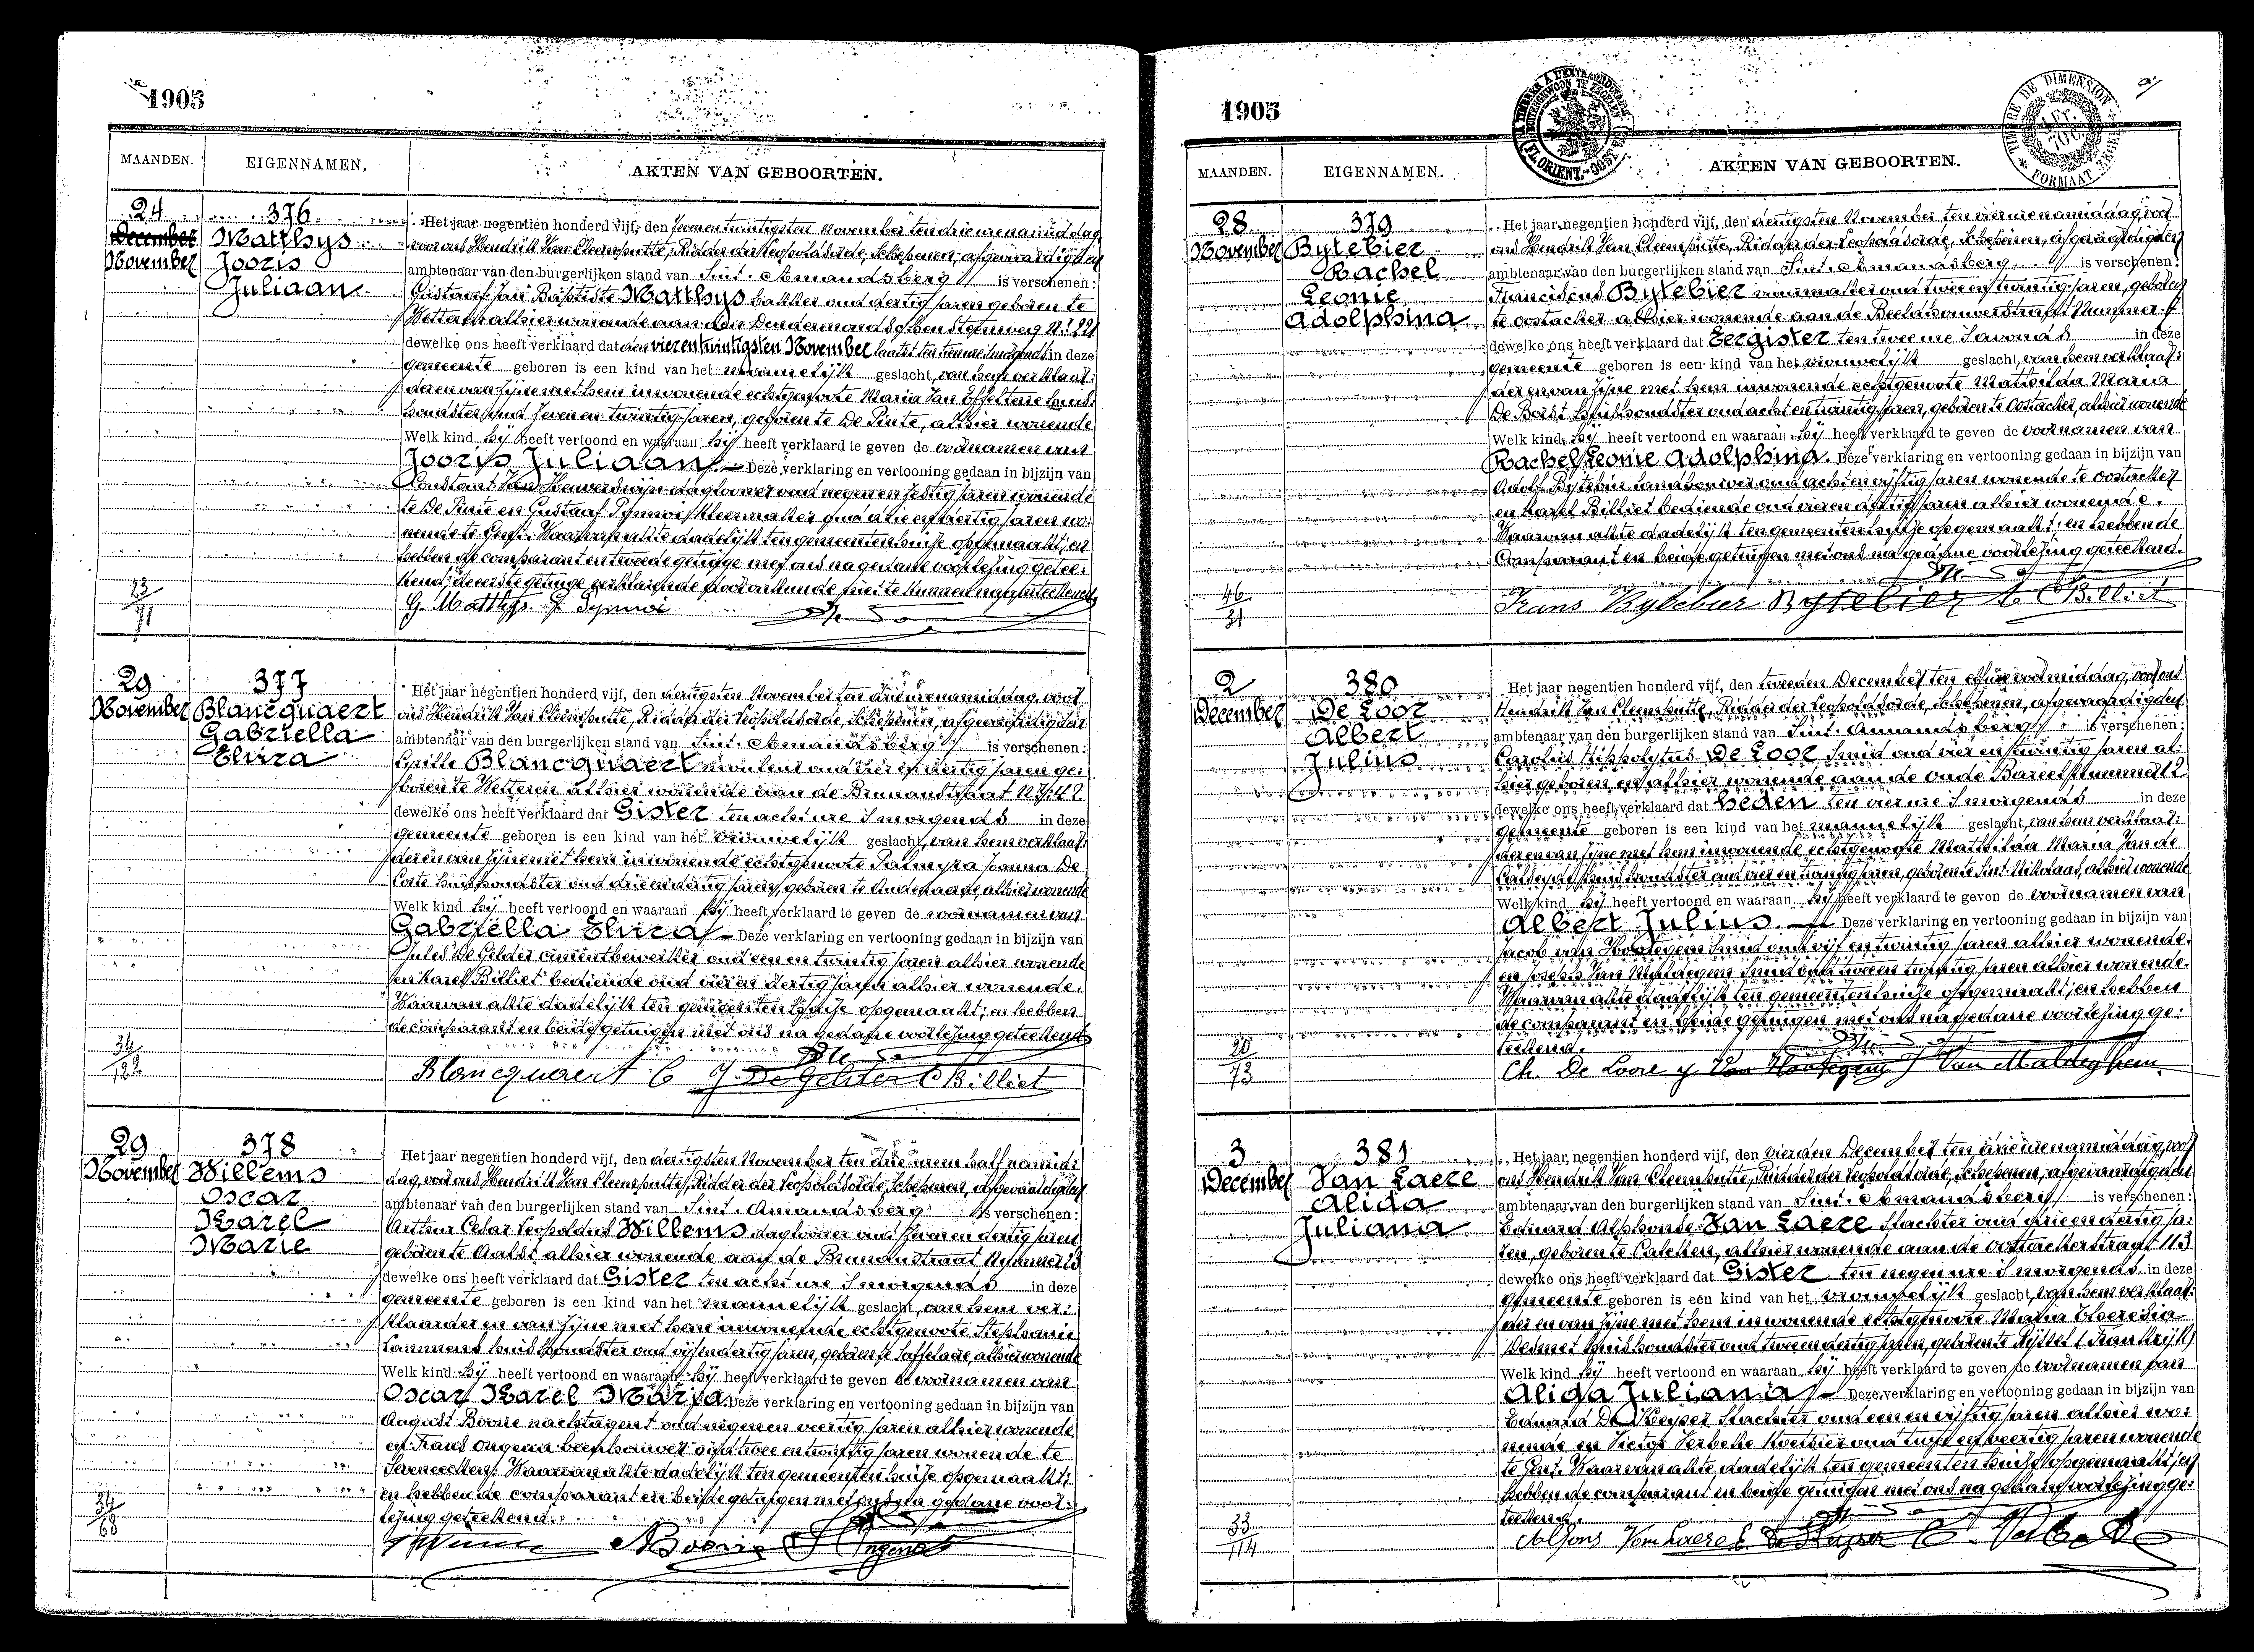 1905
MAANDEN. EIGENNAMEN. AKTEN VAN GEBOORTEN.
24
December
November
376
Matthys
Jooris
Juliaan
Het jaar negentien honderd vijf, den zeven en twintigsten November ten drie ure namiddag
voor ons Hendrik Van Cleemputte, Ridder der Leopoldsorde, Schepenen, afgevaardigden
ambtenaar van den burgerlijken stand van Sint-Amandsberg is verschenen:
Gustaaf Jan Baptiste Matthys bakker oud dertig jaren geboren te
Wetteren alhier wonende aan den Dendermondschen Steenweg
dewelke ons heeft verklaard dat den vier en twintigsten November laatst ten tien ure 's morgends in deze
gemeente geboren is een kind van het mannelijk geslacht, van hem verklaar-
der en van zijne met hem inwonende echtgenote Maria Van Effelterre huis-
houdster oud zeven en twintig jaren, geboren te De Pinte, alhier wonende
Welk kind hij heeft vertoond en waaraan hij heeft verklaard te geven de voornamen van
Jooris Juliaan Deze verklaring en vertooning gedaan in bijzijn van
Constant Van Heuverswijn dagloner oud negen en zestig jaren wonende
te De Pinte en Gustaaf kleermaker oud drie en dertig jaren wo-
nende te Gent. Waarvan akte dadelijk ten gemeentenhuize opgemaakt; en
hebben de comparant en tweede getuige met ons na gedane voorlezing getee-
kend; de eerste getuige verklarende door onkunde niet te kunnen naamteekenen
G. Matthys
23
71
29
November
377
Blancquaert
Gabriella
Elvira
Het jaar negentien honderd vijf, den dertigsten November ten drie ure namiddag, voor
ons Hendrik Van Cleemputte, Ridder der Leopoldsorde, Schepenen, afgevaardigden
ambtenaar van den burgerlijken stand van Sint-Amandsberg is verschenen:
Cyrille Blancquaert oud vier en dertig jaren ge-
boren te Wetteren alhier wonende aan de Brunaustraat
dewelke ons heeft verklaard dat Gister ten acht ure 's morgends in deze
gemeente geboren is een kind van het vrouwelijk geslacht, van hem verklaar-
der en van zijne met hem inwonende echtgenote Palmyra Joanna De
Corte huishoudster oud drie en dertig jaren, geboren te Audenaerde, alhier wonende
Welk kind hij heeft vertoond en waaraan hij heeft verklaard te geven de voornamen van
Gabriella Elvira Deze verklaring en vertooning gedaan in bijzijn van
Jules De Gelder cimentbewerker oud een en twintig jaren alhier wonende
en Karel Billiet bediende oud vier en dertig jaren alhier wonende.
Waarvan akte dadelijk ten gemeentenhuize opgemaakt; en hebben
de comparant en beide getuigen met ons na gedane voorlezing geteekend
Blancquaert C J. De Gelder C Billiet
34
122
29
November
378
Willems
Oscar
Karel
Marie
Het jaar negentien honderd vijf, den dertigsten November ten drie uren half namid-
dag, voor ons Hendrik Van Cleemputte, Ridder der Leopoldsorde, Schepenen, afgevaardigden
ambtenaar van den burgerlijken stand van Sint-Amandsberg is verschenen:
Arthur Cesar Leopoldus Willems dagloner oud zeven en dertig jaren
geboren te Aalst alhier wonende aan de Brunaustraat Nummer 23
dewelke ons heeft verklaard dat Gister ten acht ure 's morgends in deze
gemeente geboren is een kind van het mannelijk geslacht, van hem ver-
klaarder en van zijne met hem inwonende echtgenote Stephanie
Lammens huishoudster oud vijf en dertig jaren, geboren te Zaffelaere, alhier wonende
Welk kind hij heeft vertoond en waaraan hij heeft verklaard te geven de voornamen van
Oscar Karel Maria Deze verklaring en vertooning gedaan in bijzijn van
August Boone nachtagent oud negen en veertig jaren alhier wonende
en Frans Ongena oud twee en jaren wonende te
Waarvan akte dadelijk ten gemeentenhuize opgemaakt;
en hebben de comparant en beide getuigen met ons na gedane voor-
lezing geteekend.
34
68
1905
TIMBRE DE DIMENSION
FORMAAT ZEGEL
MAANDEN. EIGENNAMEN. AKTEN VAN GEBOORTEN.
28
November
379
Bytebier
Rachel
Leonie
Adolphina
Het jaar negentien honderd vijf, den dertigsten November ten vier ure namiddag voor
ons Hendrik Van Cleemputte, Ridder der Leopoldsorde, Schepenen, afgevaardigden
ambtenaar van den burgerlijken stand van Sint-Amandsberg is verschenen:
Franciscus Bytebier oud twee en twintig jaren, geboren
te Oostacker alhier wonende aan de Beeldhouwerstraat Nummer
dewelke ons heeft verklaard dat Eergister ten twee ure 's avonds in deze
gemeente geboren is een kind van het vrouwelijk geslacht, van hem verklaar-
der en van zijne met hem inwonende echtgenote Mathilda Maria
De Borst huishoudster oud acht en twintig jaren, geboren te Oostacker, alhier wonende
Welk kind hij heeft vertoond en waaraan hij heeft verklaard te geven de voornamen van
Rachel Leonie Adolphina. Deze verklaring en vertooning gedaan in bijzijn van
Adolf Bytebier landbouwer oud acht en vijftig jaren wonende te Oostacker
en Karel Billiet bediende oud vier en dertig jaren alhier wonende.
Waarvan akte dadelijk ten gemeentenhuize opgemaakt; en hebben de
Comparant en beide getuigen met ons na gedane voorlezing geteekend.
Frans Bytebier Bytebier C Billiet
46
31
2
December
380
De Loor
Albert
Julius
Het jaar negentien honderd vijf, den tweeden December ten elf ure voormiddag, voor ons
Hendrik Van Cleemputte, Ridder der Leopoldsorde, Schepenen, afgevaardigden
ambtenaar van den burgerlijken stand van Sint-Amandsberg is verschenen:
Carolus Hippolytus De Loor, smid oud vier en twintig jaren al-
hier geboren en alhier wonende aan de oude Bareel nummer 12
dewelke ons heeft verklaard dat heden ten vier ure 's morgends in deze
gemeente geboren is een kind van het mannelijk geslacht, van hem verklaar-
der en van zijne met hem inwonende echtgenote Mathilda Maria Van de
huishoudster oud vier en twintig jaren, geboren te Sint-Nikolaas, alhier wonende
Welk kind hij heeft vertoond en waaraan hij heeft verklaard te geven de voornamen van
Albert Julius Deze verklaring en vertooning gedaan in bijzijn van
Jacob Van smid oud vijf en twintig jaren alhier wonende.
en Joseph Van Maldegem smid oud twee en twintig jaren alhier wonende.
Waarvan akte dadelijk ten gemeentenhuize opgemaakt; en hebben
de comparant en beide getuigen met ons na gedane voorlezing ge-
teekend.
Ch. De Loore J Van Maldeghem.
20
73
3
December
381
Van Laere
Alida
Juliana
Het jaar negentien honderd vijf, den vierden December ten drie ure namiddag, voor
ons Hendrik Van Cleemputte, Ridder der Leopoldsorde, Schepenen, afgevaardigden
ambtenaar van den burgerlijken stand van Sint-Amandsberg is verschenen:
Eduard Alphonse Van Laere slachter oud drie en dertig ja-
ren, geboren te Calcken, alhier wonende aan de Oostackerstraat 113
dewelke ons heeft verklaard dat Gister ten negen ure 's morgends in deze
gemeente geboren is een kind van het vrouwelijk geslacht, van hem verklaar-
der en van zijne met hem inwonende echtgenote Maria Theresia
Desmet huishoudster oud twee en dertig jaren, geboren te Rijssel (Frankrijk)
Welk kind hij heeft vertoond en waaraan hij heeft verklaard te geven de voornamen van
Alida Juliana Deze verklaring en vertooning gedaan in bijzijn van
Eduard De Keyser slachter oud een en vijftig jaren alhier wo-
nende en Victor Verbeke oud en veertig jaren wonende
te Gent. Waarvan akte dadelijk ten gemeentenhuize opgemaakt; en
hebben de comparant en beide getuigen met ons na gedane voorlezing ge-
teekend.
Alfons Van Laere E. De Keyser
33
114